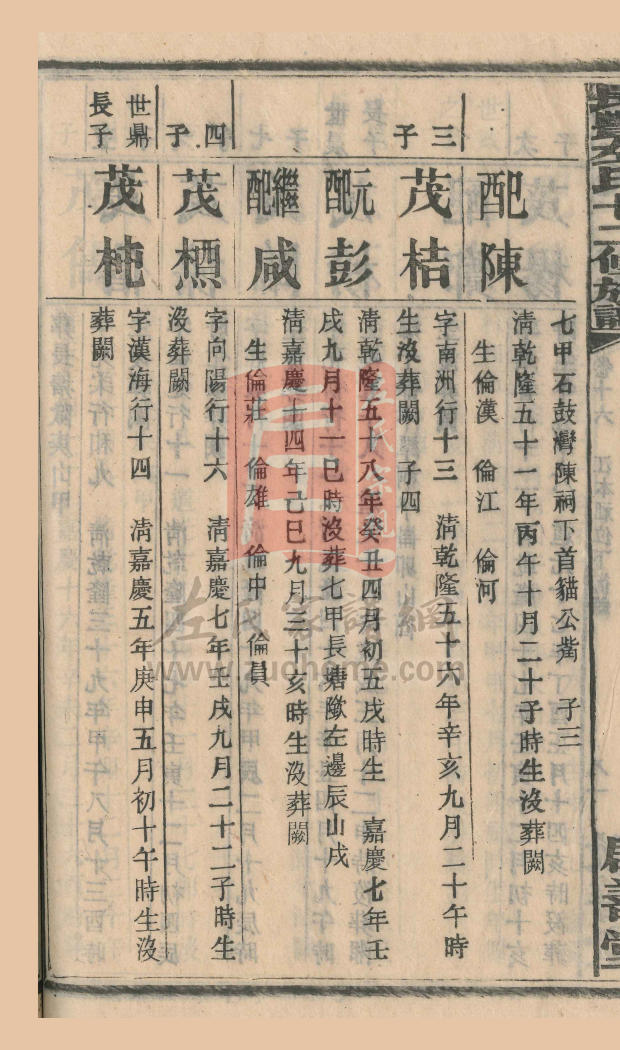 七甲石鼓灣陳祠下首貓公嘴 子三
配陳 清乾隆五十一年丙午十月二十子時生沒葬闕
生倫漢 倫江 倫河
三子 茂桔 字南洲行十三 清乾隆五十六年辛亥九月二十午時
生沒葬闕 子四
元配彭 清乾隆五十八年癸丑四月初五戌時生 嘉慶七年壬
戌九月十一巳時沒葬七甲長塘墩左邊辰山戌
繼配咸 清嘉慶十四年己巳九月三十亥時生沒葬闕
生倫莊 倫雄 倫中 倫員
四子 茂槱 字向陽行十六 清嘉慶七年壬戌九月二十二子時生
沒葬闕
世鼎長子 茂杶 字漢海行十四 清嘉慶五年庚申五月初十午時生沒
葬闕
左氏家譜網
www.zuohome.com